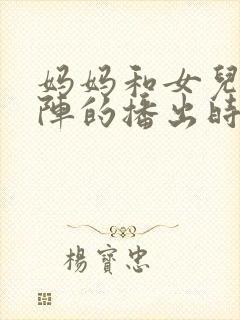 妈妈和女兒
陣的播出時
楊寶忠